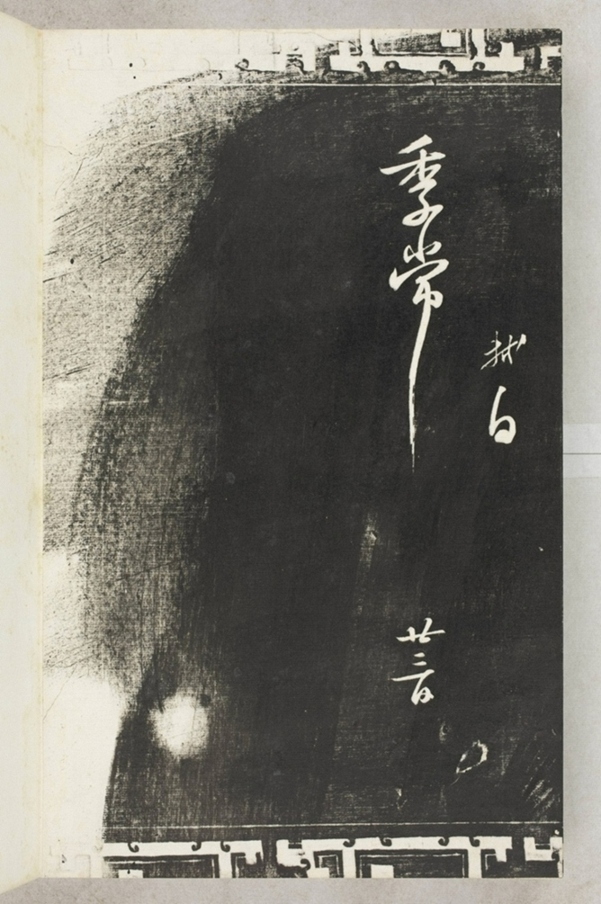 軾白
季常  廿三日